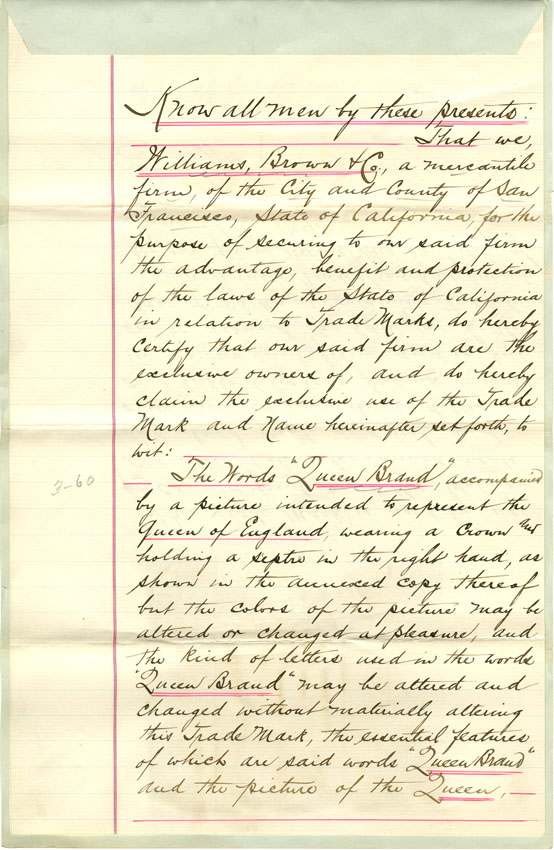 Know all men by these presents:
That we,
Williams, Brown & Co., a mercantile
firm, of the City and County of San
Francisco, State of California, for the
purpose of securing to our said firm
the advantage, benefit and protection
of the laws of the State of California
in relation to Trade Marks, do hereby
certify that our said firm are the
exclusive owners of, and do hereby
claim the exclusive use of the Trade
Mark and Name hereinafter set forth, to
wit:
The Words "Queen Brand", accompanied
3-60
by a picture intended to represent the
Queen of England, wearing a Crown and
holding a septre in the right hand, as
shown in the annexed copy thereof
but the colors of the picture may be
altered or changed at pleasure, and
the kind of letters used in the words
"Queen Brand" may be altered and
changed without materially altering
this Trade Mark, the essential features
of which are said words "Queen Brand"
and the picture of the Queen,